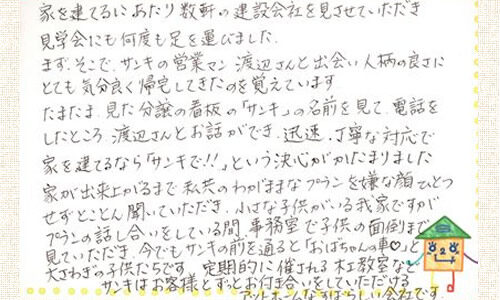 家を建てるにあたり数軒の建設会社を見させていただき
見学会にも何度も足を運びました。
まず、そこで、サンキの営業マン渡辺さんと出会い人柄の良さに
とても気分良く帰宅してきたのを覚えています
たまたま、見た分譲の看板の「サンキ」の名前を見て、電話を
したところ、渡辺さんとお話ができ、迅速、丁寧な対応で
家を建てるなら「サンキで!!」という決心がかたまりました
家が出来上がるまで私共のわがままなプランを嫌な顔ひとつ
せずとことん聞いていただき、小さな子供がいる我家ですが
プランの話し合いをしている間、事務室で子供の面倒まで
見ていただき 今でもサンキの前を通ると「おばちゃんの車♡」と
大さわぎの子供たちです 定期的に催される木工教室など
サンキはお客様とずっとお付き合いをしていただける
アットホームなすばらしい会社です